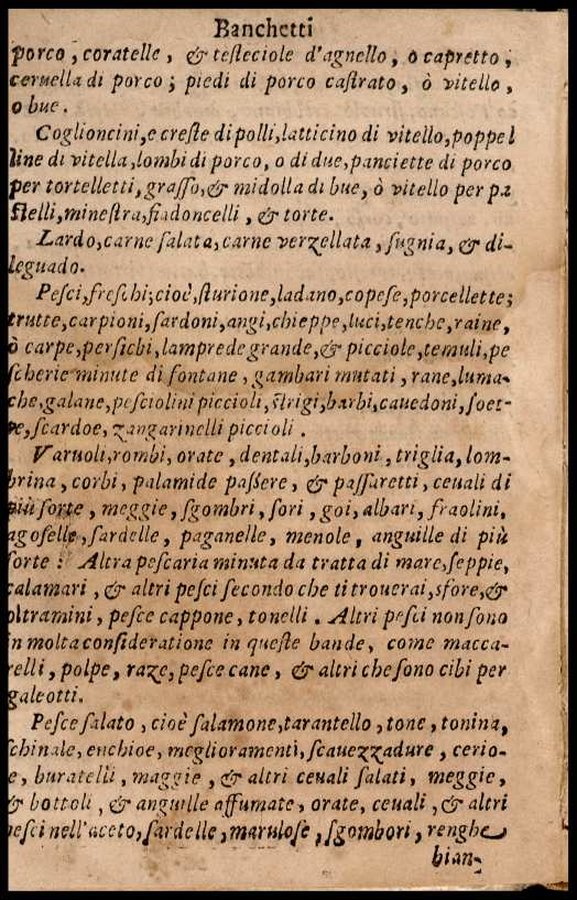 Banchetti
porco, coratelle, & teſteciole d'agnello, o capretto,
ceruella di porco; piedi di porco caſtrato, ò vitello,
o bue.
Coglioncini, e creſte di polli, latticino di vitello, poppel
line di vitella, lombi di porco, o di due, panciette di porco
per tortelletti, graſſo, & midolla di bue, ò vitello per pa
ſtelli, mineſtra, fiadoncelli, & torte.
Lardo, carne ſalata, carne verzellata, ſugnia, & di-
leguado.
Peſci, freſchi; cioè, ſturione, ladano, copeſe, porcellette;
trutte, carpioni, ſardoni, angi, chieppe, luci, tenche, raine,
ò carpe, perſichi, lamprede grande, & picciole, temuli, pe
ſcherie minute di fontane, gambari mutati, rane, luma-
che, galane, peſciolini piccioli, ſtrigi, barbi, cauedoni, ſoet-
te, ſcardoe, zangarinelli piccioli.
Varuoli, rombi, orate, dentali, barboni, triglia, lom-
brina, corbi, palamide paſſere, & paſſaretti, ceuali di
più ſorte, meggie, ſgombri, ſori, goi, albari, fraolini,
agoſelle, ſardelle, paganelle, menole, anguille di più
ſorte: Altra peſcaria minuta da tratta di mare, ſeppie,
calamari, & altri peſci ſecondo che ti trouerai, sfore, &
oltramini, peſce cappone, tonelli. Altri peſci non ſono
in molta conſideratione in queſte bande, come macca-
relli, polpe, raze, peſce cane, & altri che ſono cibi per
galeotti.
Peſce ſalato, cioè ſalamone, tarantello, tone, tonina,
ſchinale, enchioe, meglioramenti, ſcauezzadure, cerio-
e, buratelli, maggie, & altri ceuali ſalati, meggie,
& bottoli, & anguille affumate, orate, ceuali, & altri
peſci nell'aceto, ſardelle, maruloſe, ſgombori, renghe
bian-